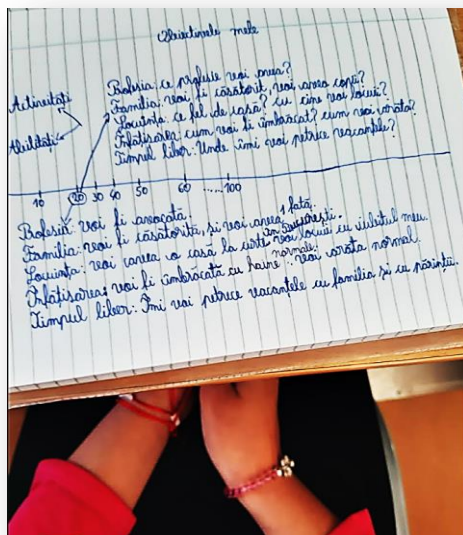 Obiectivele mele
Activități
Abilități
Profesia: ce profesie voi avea?
Familia: voi fi căsătorit, voi avea copii?
Locuința: ce fel de casă? cu cine voi locui?
Înfățișarea: cum voi fi îmbrăcat? cum voi arăta?
Timpul liber: Unde îmi voi petrece vacanțele?
10 20 30 40 50 60 ...... 100
Profesia: voi fi avocată.
Familia: voi fi căsătorită, și voi avea 1 fată.
Locuința: voi avea o casă la în București. voi locui cu iubitul meu.
Înfățișarea: voi fi îmbrăcată cu haine normale. voi arăta normal.
Timpul liber: Îmi voi petrece vacanțele cu familia și cu părinții.